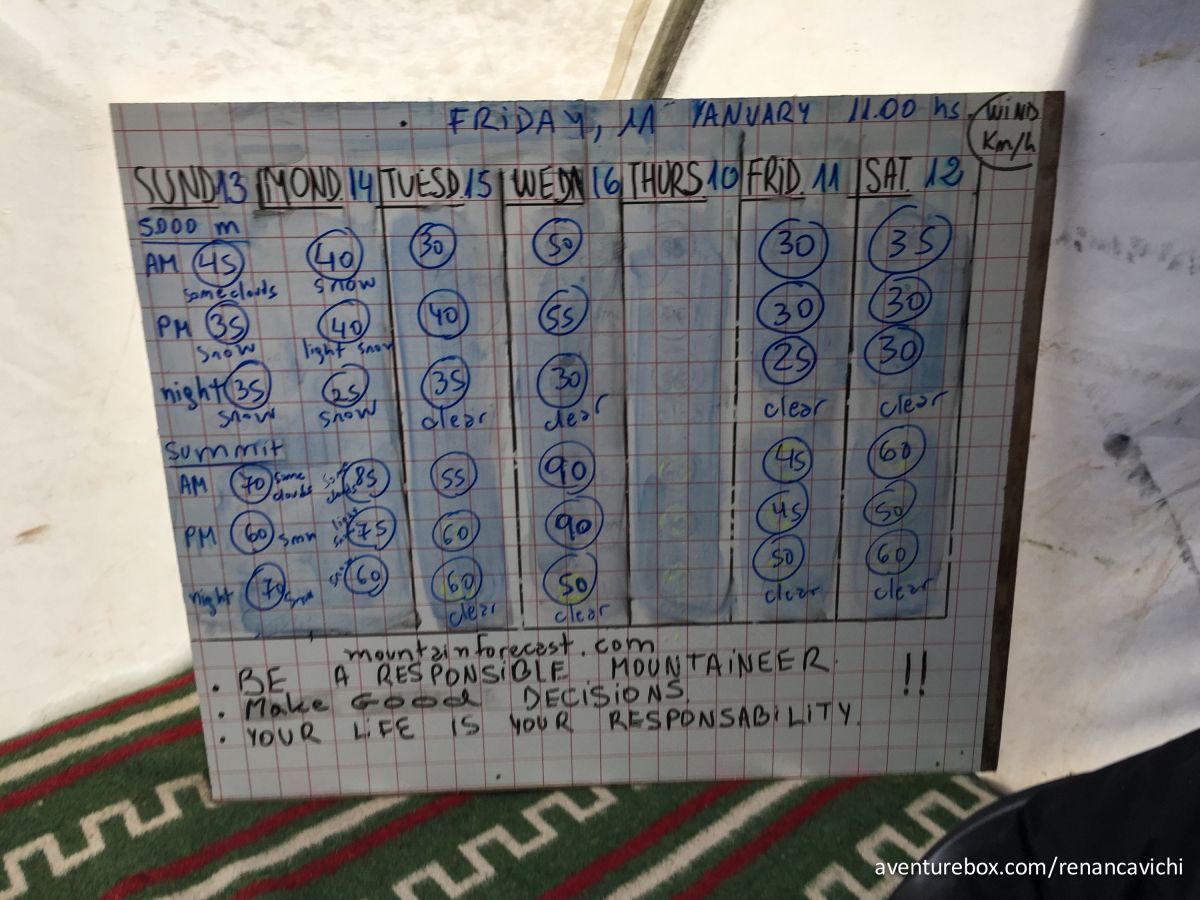 FRiDAY, 11 YANUARY 11.00 hs.
WiND
Km/h
SUND 13 MOND. 14 TUESD. 15 WEDN 16 THURS 10 FRiD. 11 SAT. 12
5000 m
AM 45 40 30 50 30 35
some clouds snow
PM 35 40 40 55 30 30
snow light snow
night 35 25 35 30 25 30
snow snow clear clear clear clear
Summit
AM 70 some clouds 85 55 90 45 60
PM 60 75 60 90 45 50
night 70 60 60 50 50 60
clear clear clear clear
mountainforecast.com
. BE A RESPONSiBLE MOUNTAiNEER !!
. Make Good DECiSiONS.
. YOUR LiFE iS YOUR RESPONSABiLiTY.
aventurebox.com/renancavichi